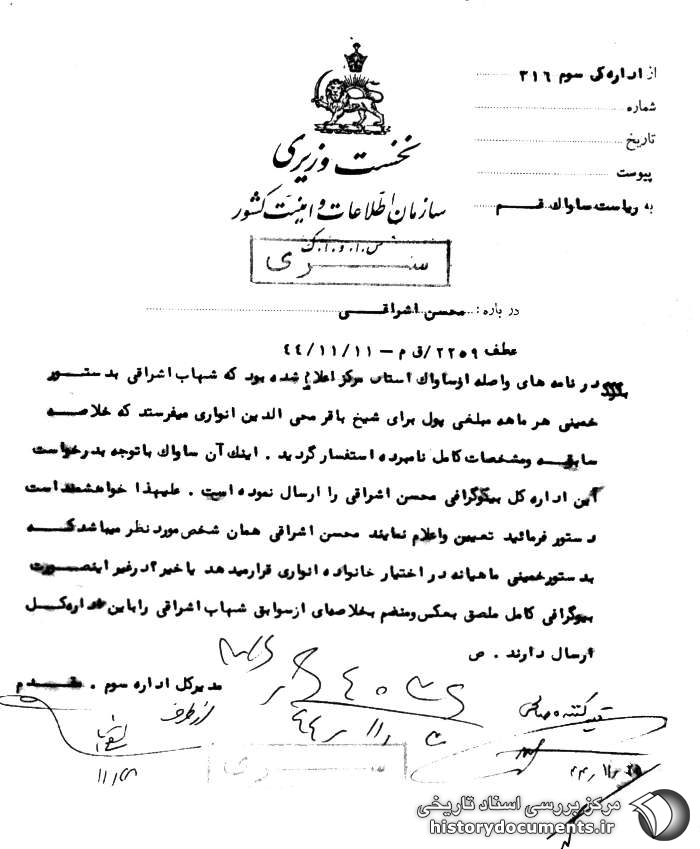 از اداره کل سوم ۳۱۶
شماره
تاریخ
پیوست
به ریاست ساواک قم
نخست وزیری
سازمان اطلاعات و امنیت کشور
س.ا.و.ا.ک
سری
درباره: محسن اشراقی
عطف ۲۲۵۹/ق م – ۴۴/۱۱/۱۱
در نامه های واصله از ساواک استان مرکز اعلام شده بود که شهاب اشراقی بدستور
خمینی هر ماهه مبلغی پول برای شیخ باقر محی الدین انواری میفرستد که خلاصه
سابقه ومشخصات کامل نامبرده استفسار گردید . اینک آن ساواک باتوجه بدرخواست
این اداره کل بیوگرافی محسن اشراقی را ارسال نموده است . علیهذا خواهشمند است
دستور فرمائید تعیین واعلام نمایند محسن اشراقی همان شخص مورد نظر میباشد که
بدستور خمینی ماهیانه در اختیار خانواده انواری قرار میدهد یا خیر؟ درغیر اینصورت
بیوگرافی کامل ملصق بعکس ومنضم بخلاصه‌ای از سوابق شهاب اشراقی را باین اداره کل
ارسال دارند . ص
مدیرکل اداره سوم . مقدم
از طرف
سری
مرکز بررسی اسناد تاریخی
historydocuments.ir